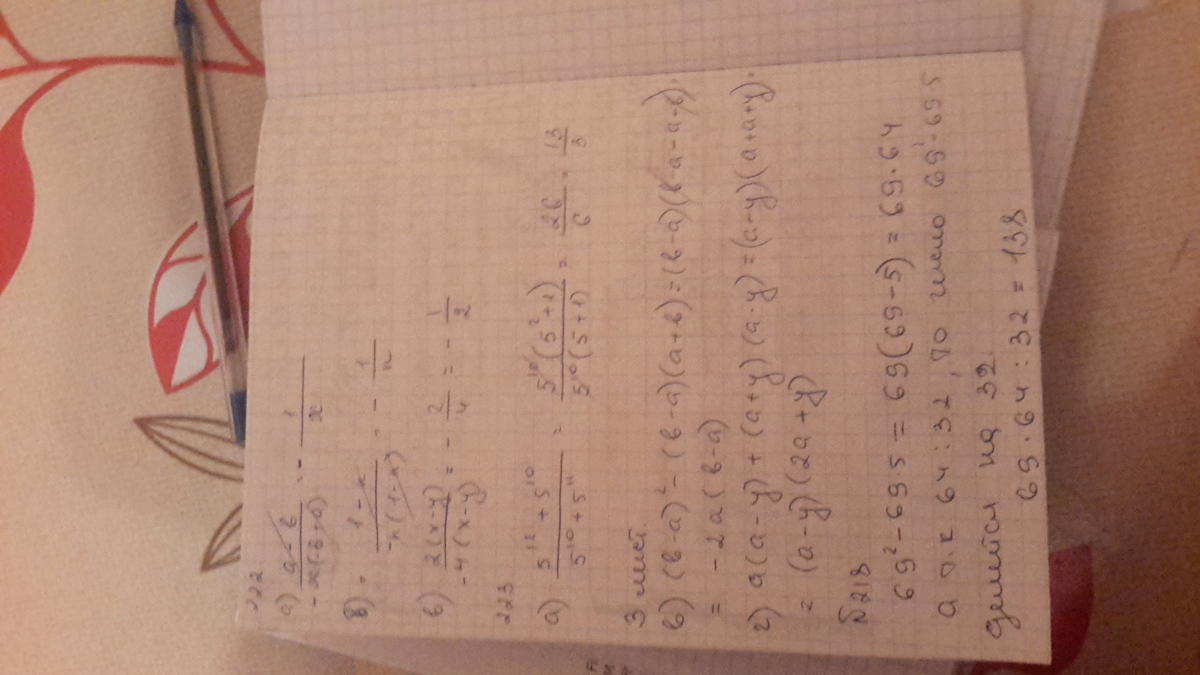 222
а) a-b / -x(-b+a) = - 1/x
б) = 1-x / -n(1-x) = - 1/n
в) 2(x-y) / -4(x-y) = - 2/4 = - 1/2
223
а) 5¹²+5¹⁰ / 5¹⁰+5¹¹ = 5¹⁰(5²+1) / 5¹⁰(5+1) = 26/6 = 13/3
3 лист
в) (в-a)² - (в-a)(a+в) = (в-a)(в-a-a-в) =
= -2a(в-a)
г) a(a-y)+(a+y)(a-y)=(a-y)(a+a+y) =
= (a-y)(2a+y)
№218
69²-69·5 = 69(69-5) = 69·64
а т.к 64:32, то число 69²-69·5
делится на 32.
69·64:32=138